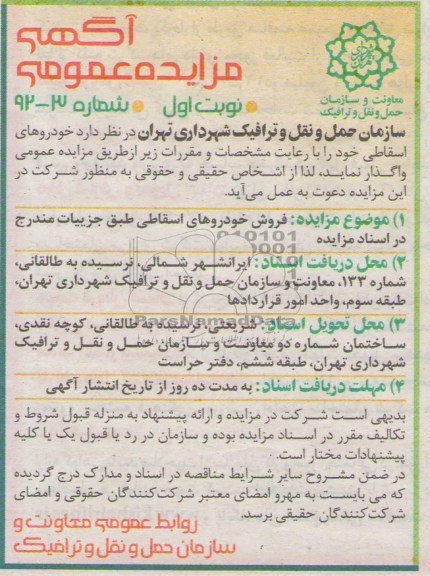 آگهی
مزایده عمومی
نوبت اول • شماره ۳-۹۲
معاونت و سازمان
حمل و نقل و ترافیک
سازمان حمل و نقل و ترافیک شهرداری تهران در نظر دارد خودروهای
اسقاطی خود را با رعایت مشخصات و مقررات زیر ازطریق مزایده عمومی
واگذار نماید، لذا از اشخاص حقیقی و حقوقی به منظور شرکت در
این مزایده دعوت به عمل می‌آید.
۱) موضوع مزایده: فروش خودروهای اسقاطی طبق جزییات مندرج
در اسناد مزایده
۲) محل دریافت اسناد: ایرانشهر شمالی، نرسیده به طالقانی،
شماره ۱۳۳، معاونت و سازمان حمل و نقل و ترافیک شهرداری تهران،
طبقه سوم، واحد امور قراردادها
۳) محل تحویل اسناد: شریعتی، نرسیده به طالقانی، کوچه نقدی،
ساختمان شماره دو معاونت و سازمان حمل و نقل و ترافیک
شهرداری تهران، طبقه ششم، دفتر حراست
۴) مهلت دریافت اسناد: به مدت ده روز از تاریخ انتشار آگهی
بدیهی است شرکت در مزایده و ارائه پیشنهاد به منزله قبول شروط و
تکالیف مقرر در اسناد مزایده بوده و سازمان در رد یا قبول یک یا کلیه
پیشنهادات مختار است.
در ضمن مشروح سایر شرایط مناقصه در اسناد و مدارک درج گردیده
که می بایست به مهرو امضای معتبر شرکت‌کنندگان حقوقی و امضای
شرکت‌کنندگان حقیقی برسد.
روابط عمومی معاونت و
سازمان حمل و نقل و ترافیک
ParsNamadData